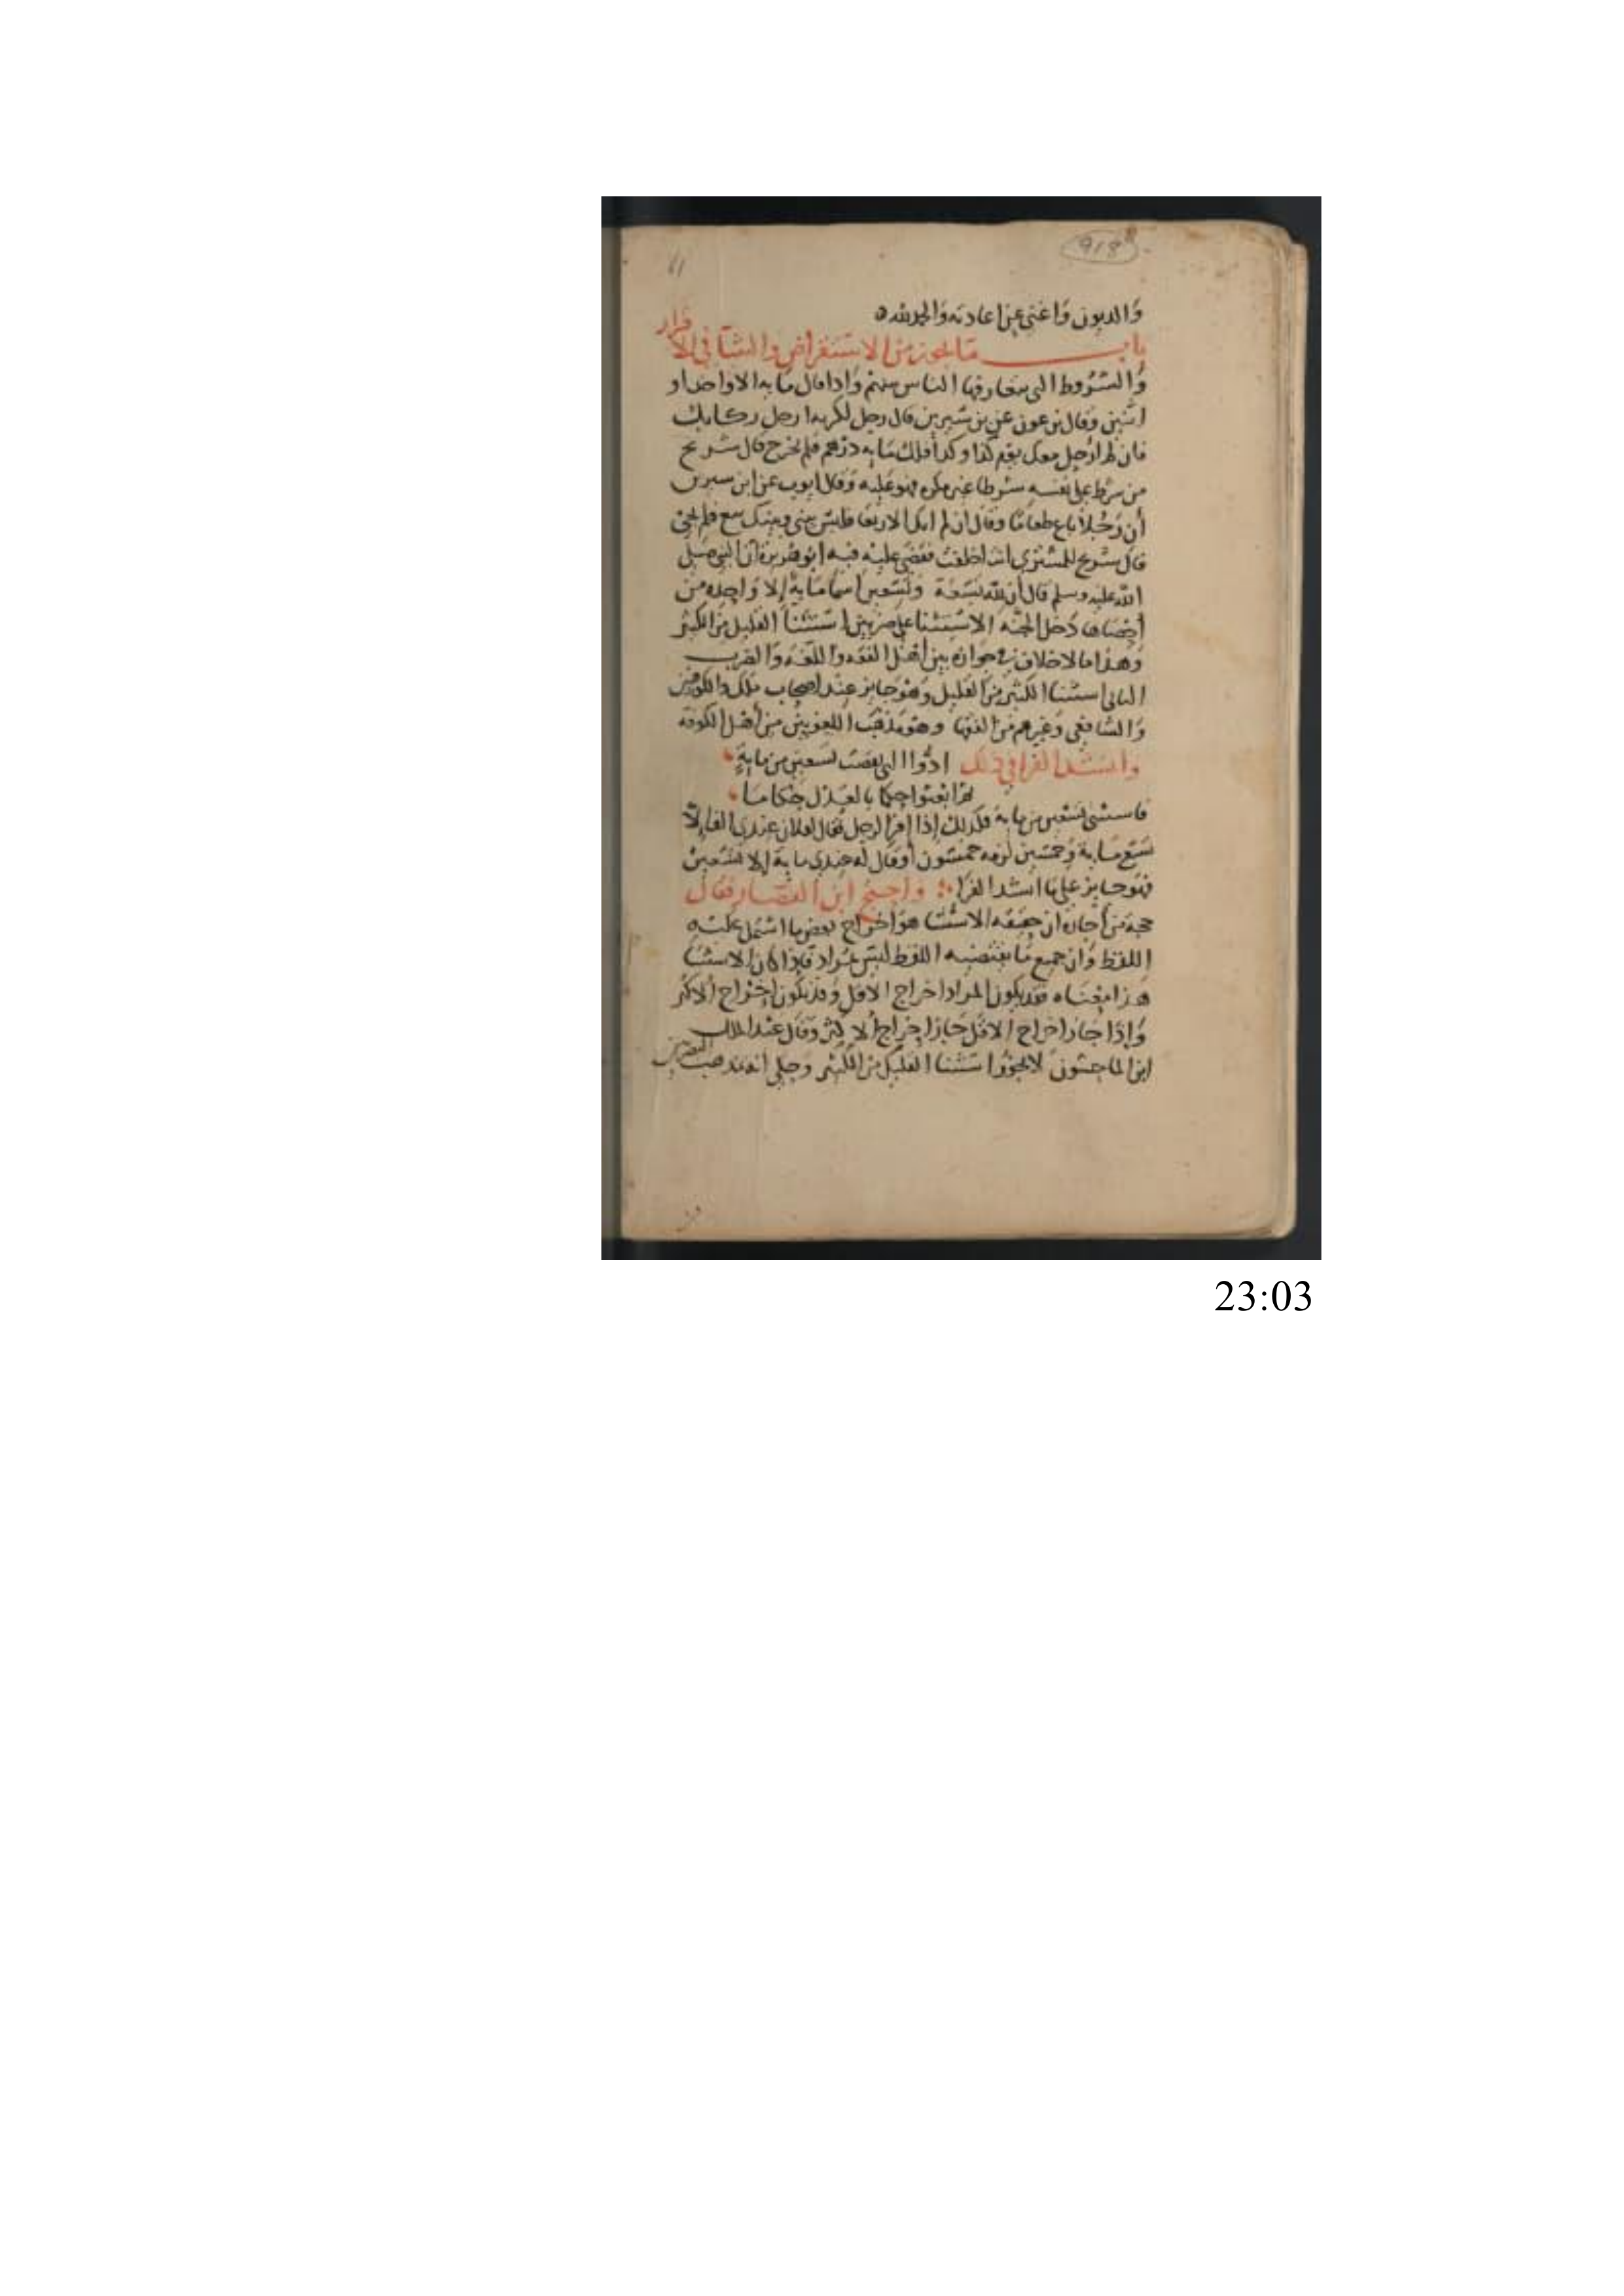 918
11
والديون واغنى عن اعادته والحمد لله
باب ما يجوز من الاستقراض والثنا في الاقرار
والشروط التي يتعارفها الناس بينهم واذا قال مايه الا واحدا او
اثنين وقال بن عون عن بن سيرين قال رجل لكريه ارحل ركابك
فان لم ارحل معك يوم كذا وكذا فلك مايه درهم فلم يخرج قال شريح
من شرط على نفسه شرطا غير مكره فهو عليه وقال ايوب عن ابن سيرين
أن رجلا باع طعاما وقال ان لم اتك الاربعا فليس بيني وبينك بيع فلم يجئ
قال شريح للمشتري انت اخلفت فقضى عليه فيه ابو هريرة أن النبي صلى
الله عليه وسلم قال أن لله تسعة وتسعين اسما ماية إلا واحده من
أحصاها دخل الجنه الاستثنا على ضربين استثنا القليل من الكثير
وهذا ما لا خلاف في جوازه بين أهل الفقه واللغه والضرب
الثاني استثنا الكثير من القليل وهو جايز عند اصحاب ملك والكوفيين
والشافعي وغيرهم من الفقها وهو مذهب اللغويين من أهل الكوفه
وانشد الفرا في ذلك ادوا التي نقصت تسعين من ماية
ثم ابعثوا حكما بالعدل حكاما
فاستثنى تسعين من مايه فكذلك إذا اقر الرجل فقال لفلان عندي الف إلا
تسع ماية وخمسين لزمه خمسون أوقال له عندي ماية إلا تسعين
فهو جايز على ما انشد الفرا واحتج ابن القصار فقال
حجة من أجازه ان حقيقه الاستثنا هو اخراج بعض ما اشتمل عليه
اللفظ وان جميع ما يقتضيه اللفظ ليس بمراد فاذا كان الاستثنا
هذا معناه فقد يكون المراد اخراج الاقل وقد يكون إخراج ألاكثر
وإذا جاز اخراج الاقل جاز اخراج ألاكثر وقال عبد الملك
ابن الماجشون لا يجوز استثنا القليل من الكثير وحكي انه مذهب البصريين
23:03